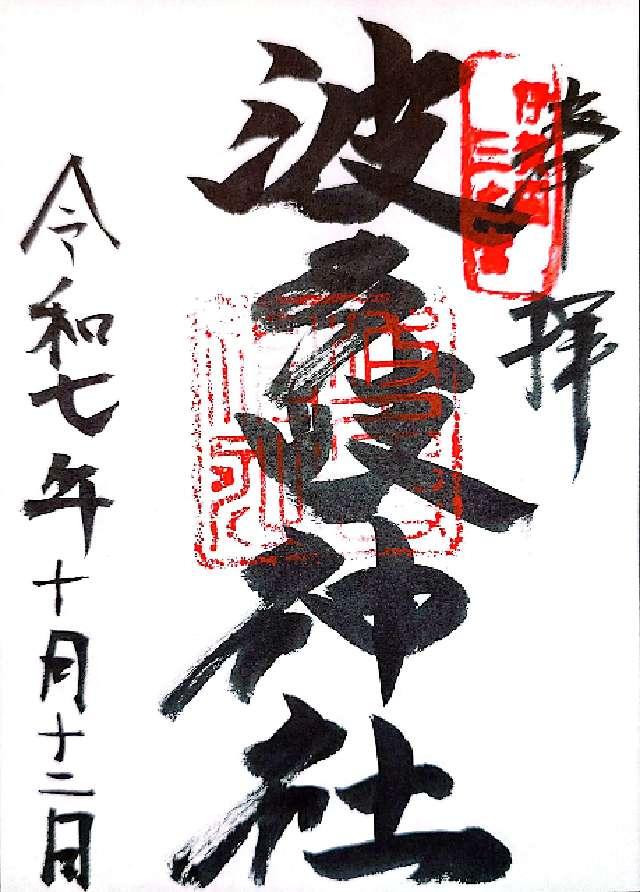 奉拝
波多岐神社
令和七年十月十二日